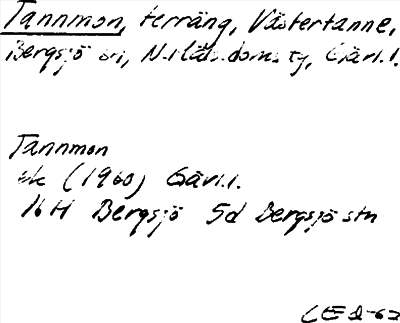 Tannmon, terräng, Västertanne,
Bergsjö sn, N. Häls. doms. tg, Gävl. l.
Tannmon
ek (1960) Gävl. l.
16H Bergsjö 5d Bergsjö stn